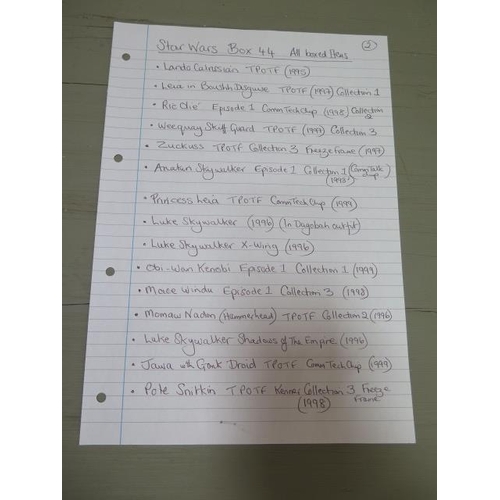 Star Wars Box 44 All boxed Items (2)
• Lando Calrissian TPOTF (1995)
• Leia in Boushh Disguise TPOTF (1997) Collection 1
• Ric Olié Episode 1 CommTechChip (1998) Collection 2
• Weequay Skiff Guard TPOTF (1997) Collection 3
• Zuckuss TPOTF Collection 3 FreezeFrame (1997)
• Anakin Skywalker Episode 1 Collection 1 (CommTalk chip)
(1998)
• Princess Leia TPOTF CommTechChip (1999)
• Luke Skywalker (1996) (In Dagobah outfit)
• Luke Skywalker X-Wing (1996)
• Obi-Wan Kenobi Episode 1 Collection 1 (1999)
• Mace Windu Episode 1 Collection 3 (1998)
• Momaw Nadon (Hammerhead) TPOTF Collection 2 (1996)
• Luke Skywalker Shadows of The Empire (1996)
• Jawa with Gonk Droid TPOTF CommTechChip (1999)
• Pote Snitkin TPOTF Kenner Collection 3 Freeze Frame
(1998)